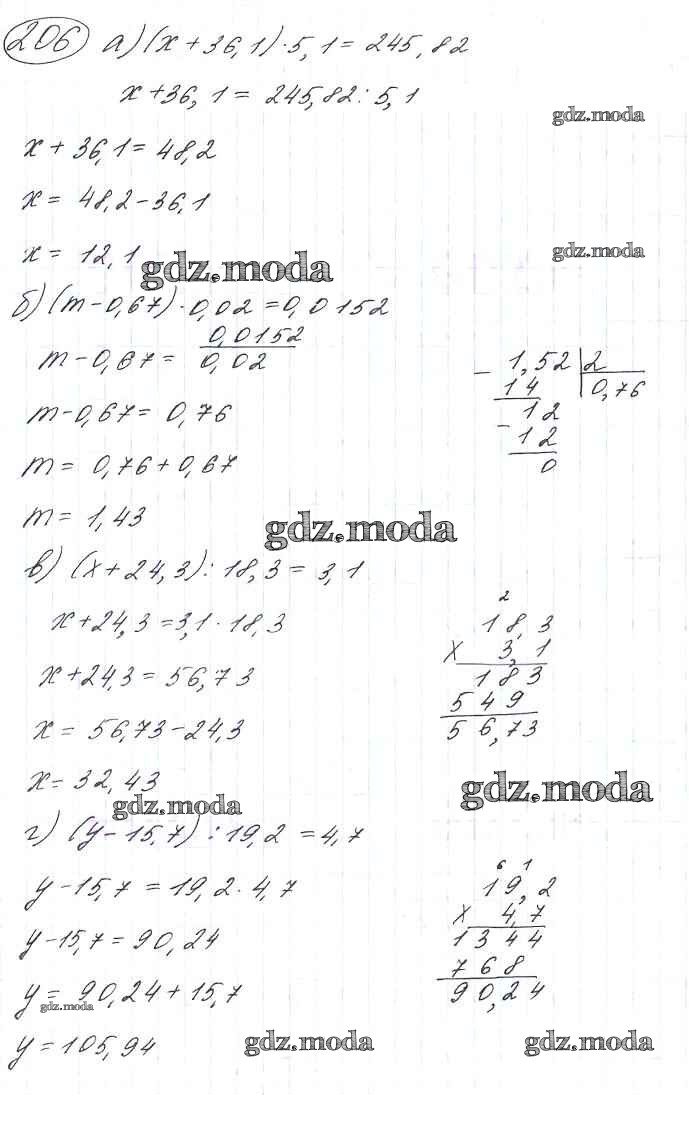 206 а) (x + 36,1) · 5,1 = 245,82
x + 36,1 = 245,82 : 5,1
gdz.moda
x + 36,1 = 48,2
x = 48,2 - 36,1
x = 12,1
gdz.moda
gdz.moda
б) (m - 0,67) · 0,02 = 0,0152
m - 0,67 = 0,0152
0,02
m - 0,67 = 0,76
m = 0,76 + 0,67
m = 1,43
- 1,52 2
14 0,76
12
- 12
0
gdz.moda
в) (x + 24,3) : 18,3 = 3,1
x + 24,3 = 3,1 · 18,3
x + 24,3 = 56,73
x = 56,73 - 24,3
x = 32,43
2
18,3
x 3,1
183
549
56,73
gdz.moda
gdz.moda
г) (y - 15,7) : 19,2 = 4,7
y - 15,7 = 19,2 · 4,7
y - 15,7 = 90,24
y = 90,24 + 15,7
gdz.moda
y = 105,94
6 1
19,2
x 4,7
1344
768
90,24
gdz.moda
gdz.moda